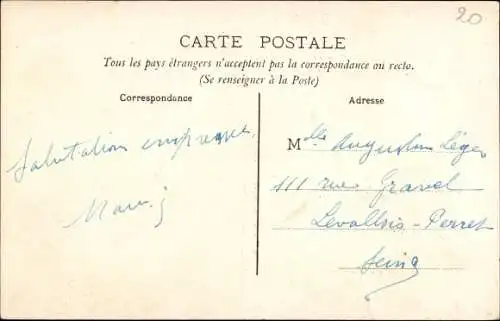 20
CARTE POSTALE
Tous les pays étrangers n'acceptent pas la correspondance au recto.
(Se renseigner à la Poste)
Correspondance
Adresse
Salutations
Mlle Léger
111 rue Gravel
Levallois-Perret
Seine